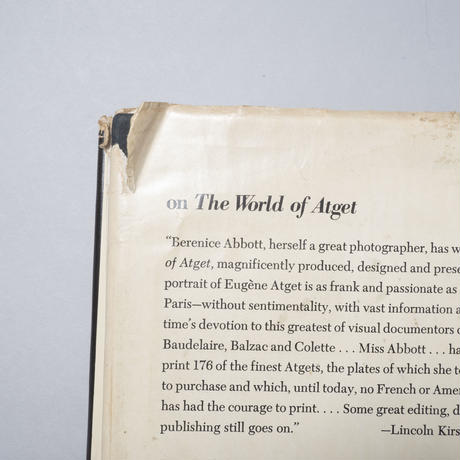 on The World of Atget
“Berenice Abbott, herself a great photographer, has w
of Atget, magnificently produced, designed and prese
portrait of Eugène Atget is as frank and passionate as
Paris—without sentimentality, with vast information a
time’s devotion to this greatest of visual documentors o
Baudelaire, Balzac and Colette . . . Miss Abbott . . . ha
print 176 of the finest Atgets, the plates of which she to
to purchase and which, until today, no French or Amer
has had the courage to print. . . . Some great editing, d
publishing still goes on.” —Lincoln Kirs